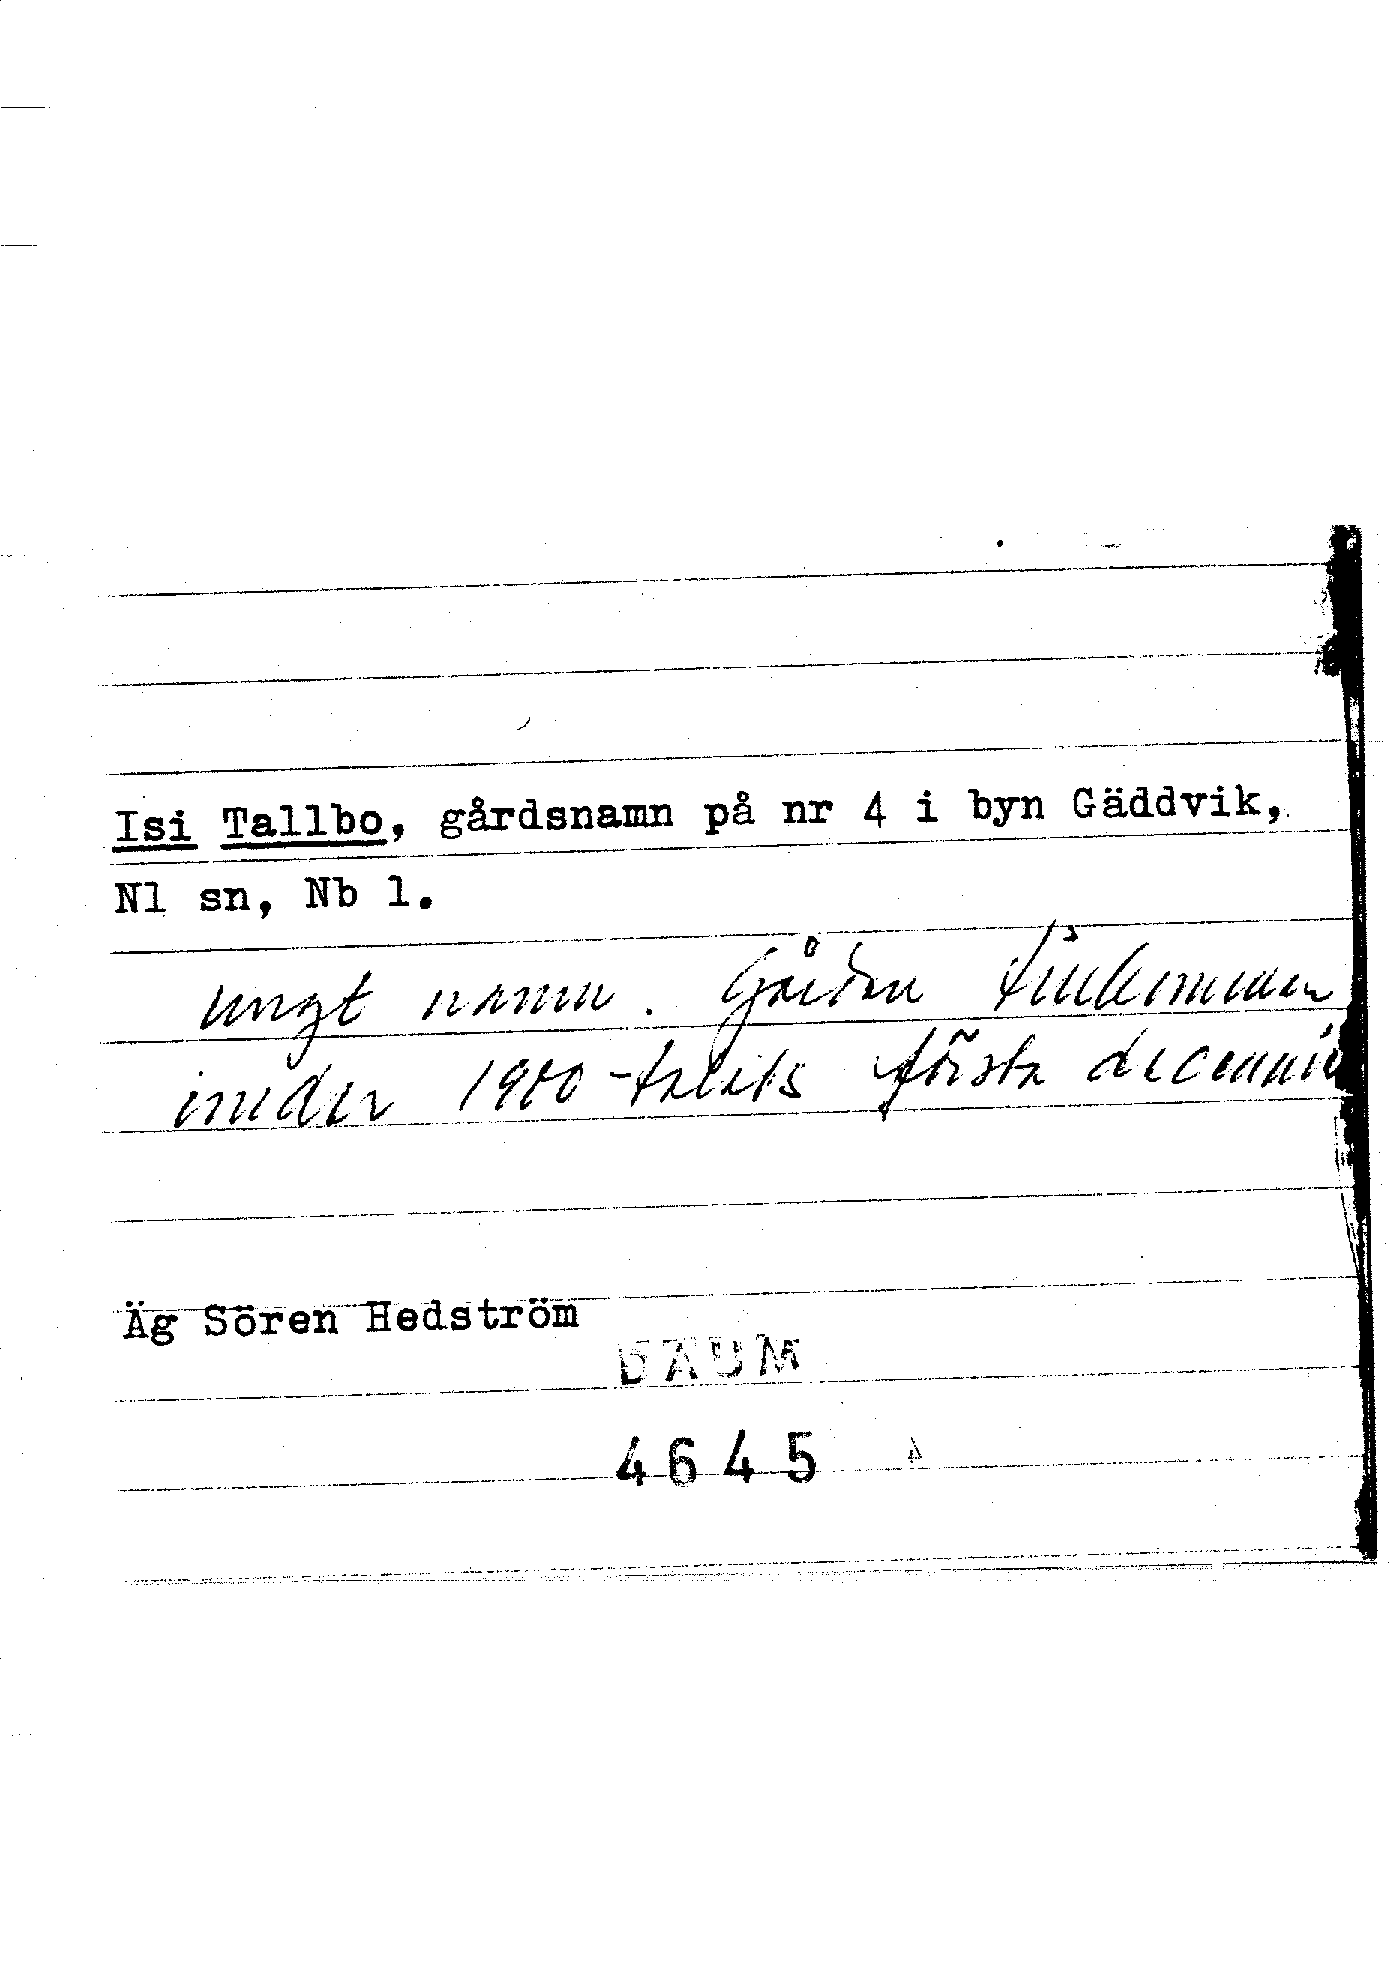 Isi Tallbo, gårdsnamn på nr 4 i byn Gäddvik,
Nl sn, Nb l.
ungt namn. Gården tillkommen
under 1900-talets första decennie
Äg Sören Hedström
DAUM
4645